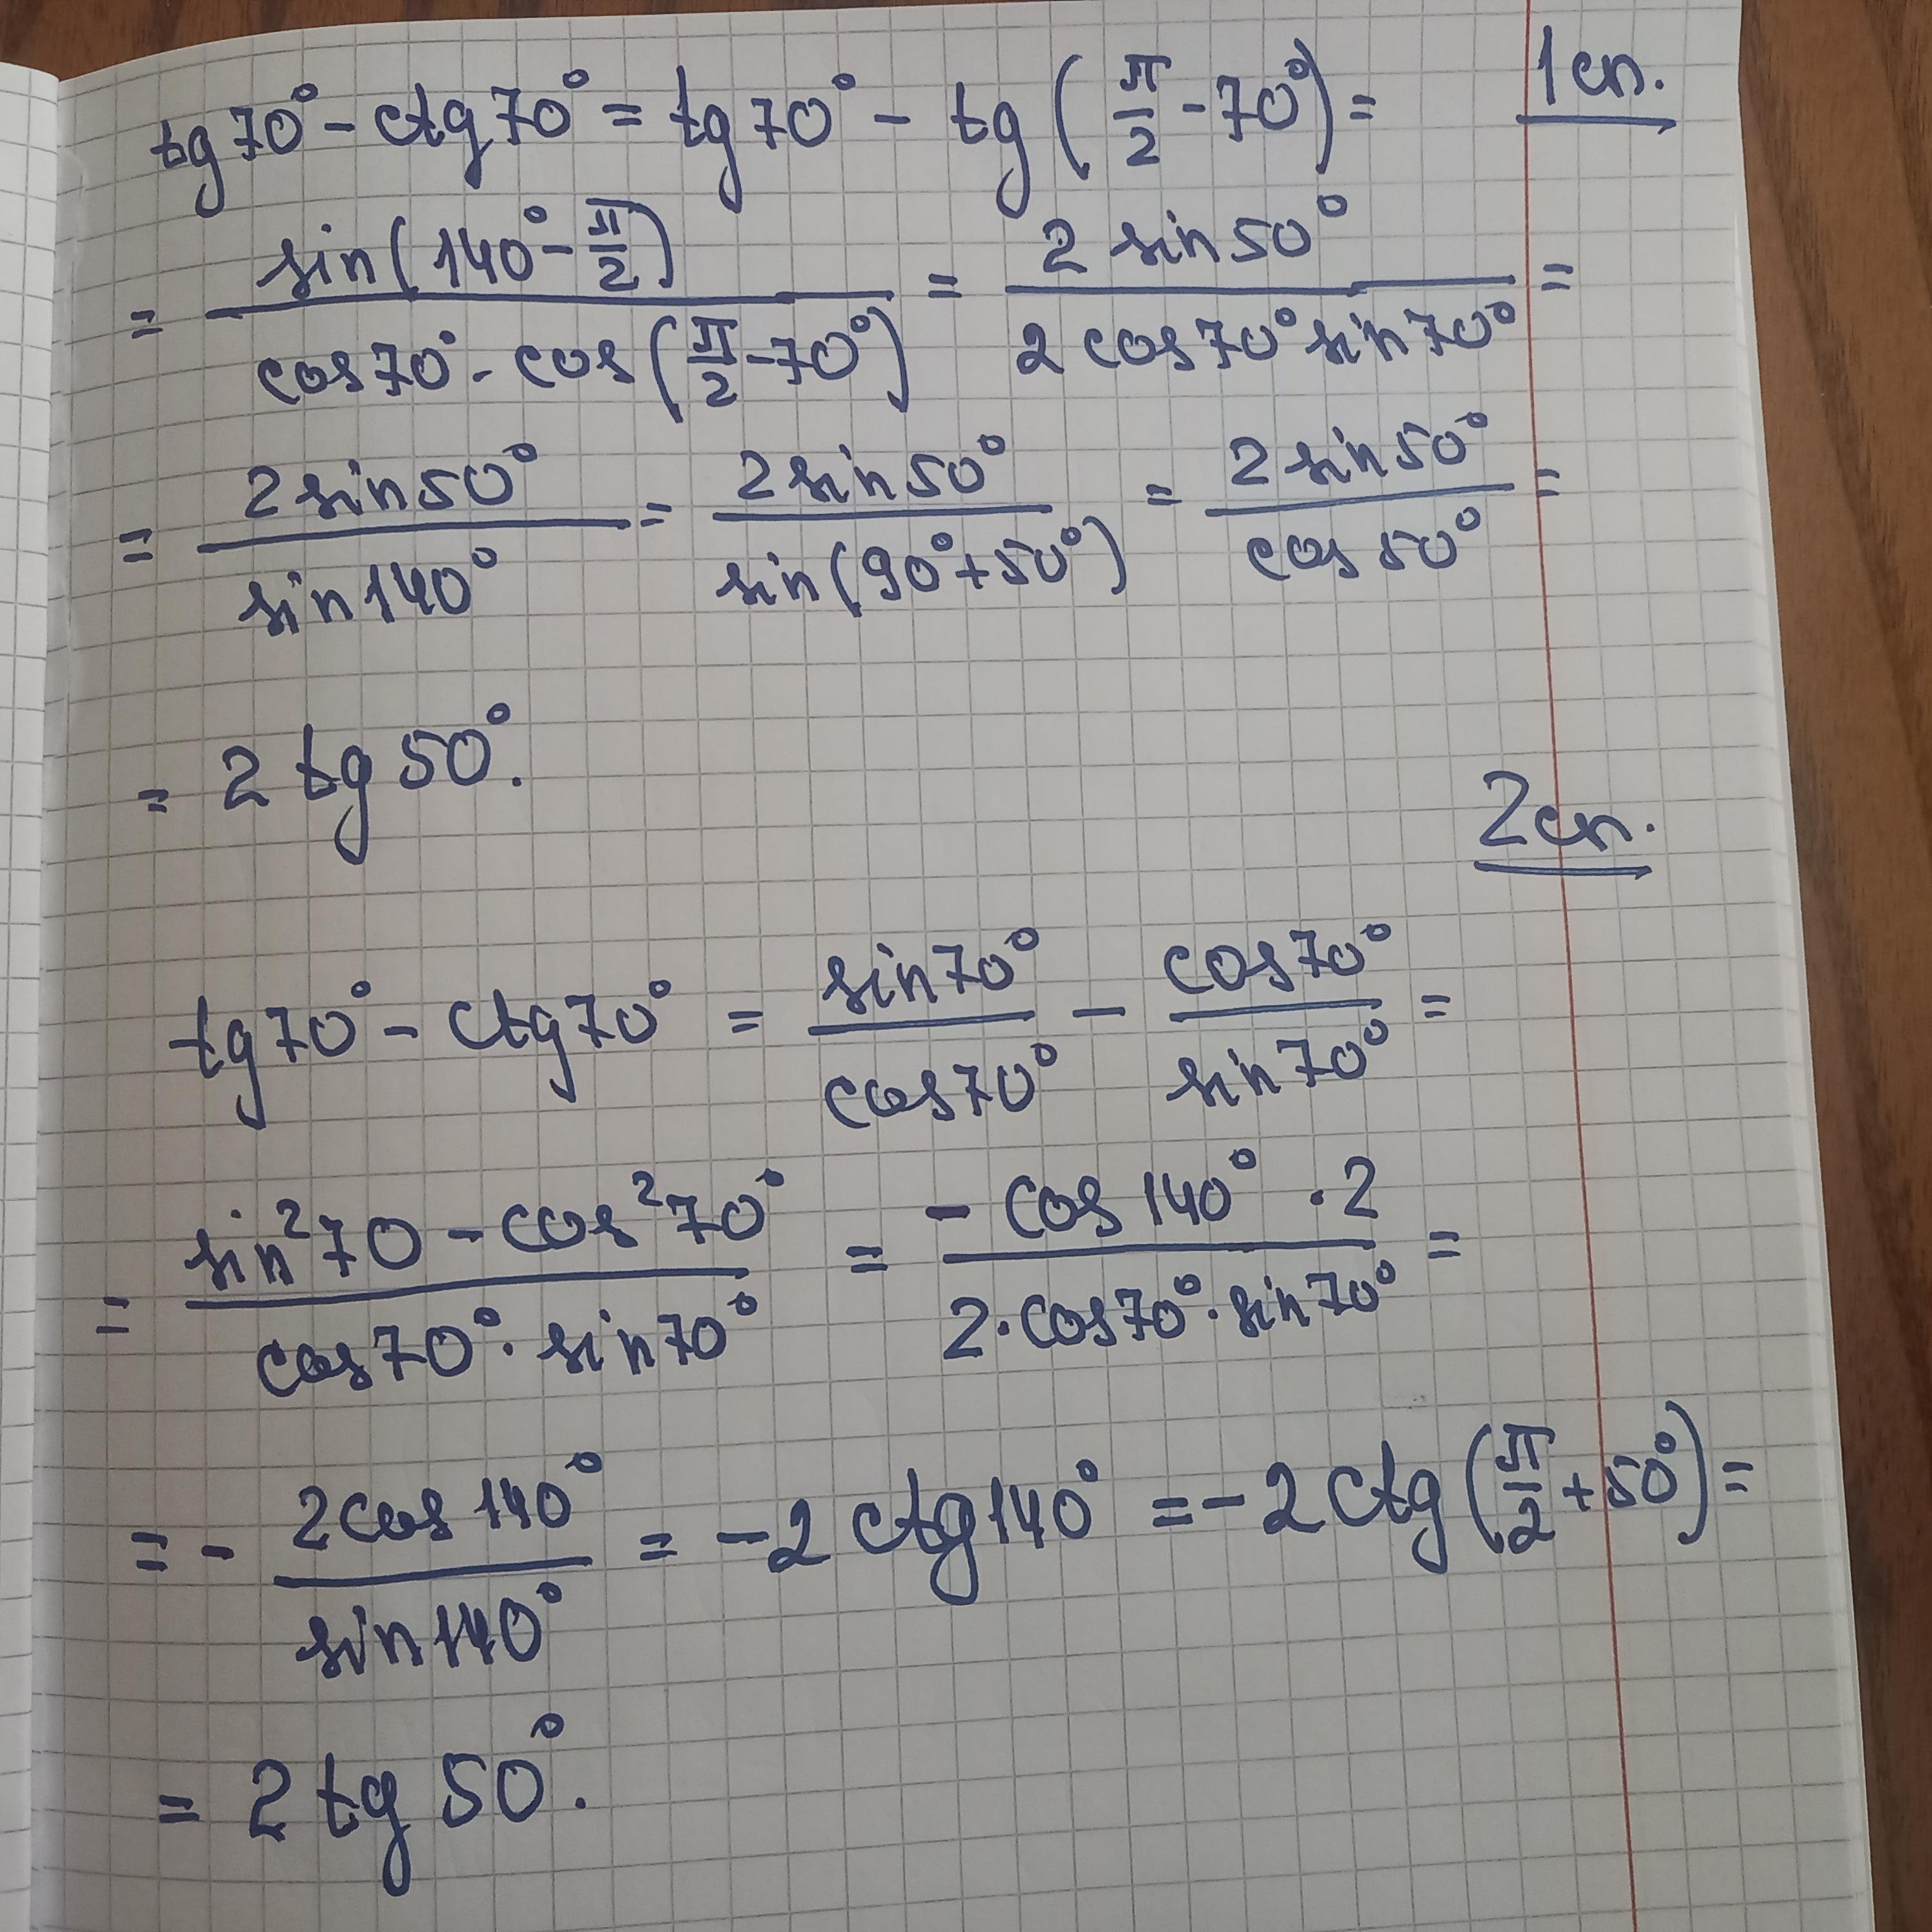 tg 70° - ctg 70° = tg 70° - tg (π/2 - 70°) = 1 сп.
= sin(140° - π/2) / cos 70° · cos(π/2 - 70°) = 2 sin 50° / 2 cos 70° sin 70° =
= 2 sin 50° / sin 140° = 2 sin 50° / sin(90° + 50°) = 2 sin 50° / cos 50° =
= 2 tg 50°.
2 сп.
tg 70° - ctg 70° = sin 70° / cos 70° - cos 70° / sin 70° =
= sin² 70 - cos² 70° / cos 70° · sin 70° = - cos 140° · 2 / 2 · cos 70° · sin 70° =
= - 2 cos 140° / sin 140° = -2 ctg 140° = -2 ctg (π/2 + 50°) =
= 2 tg 50°.